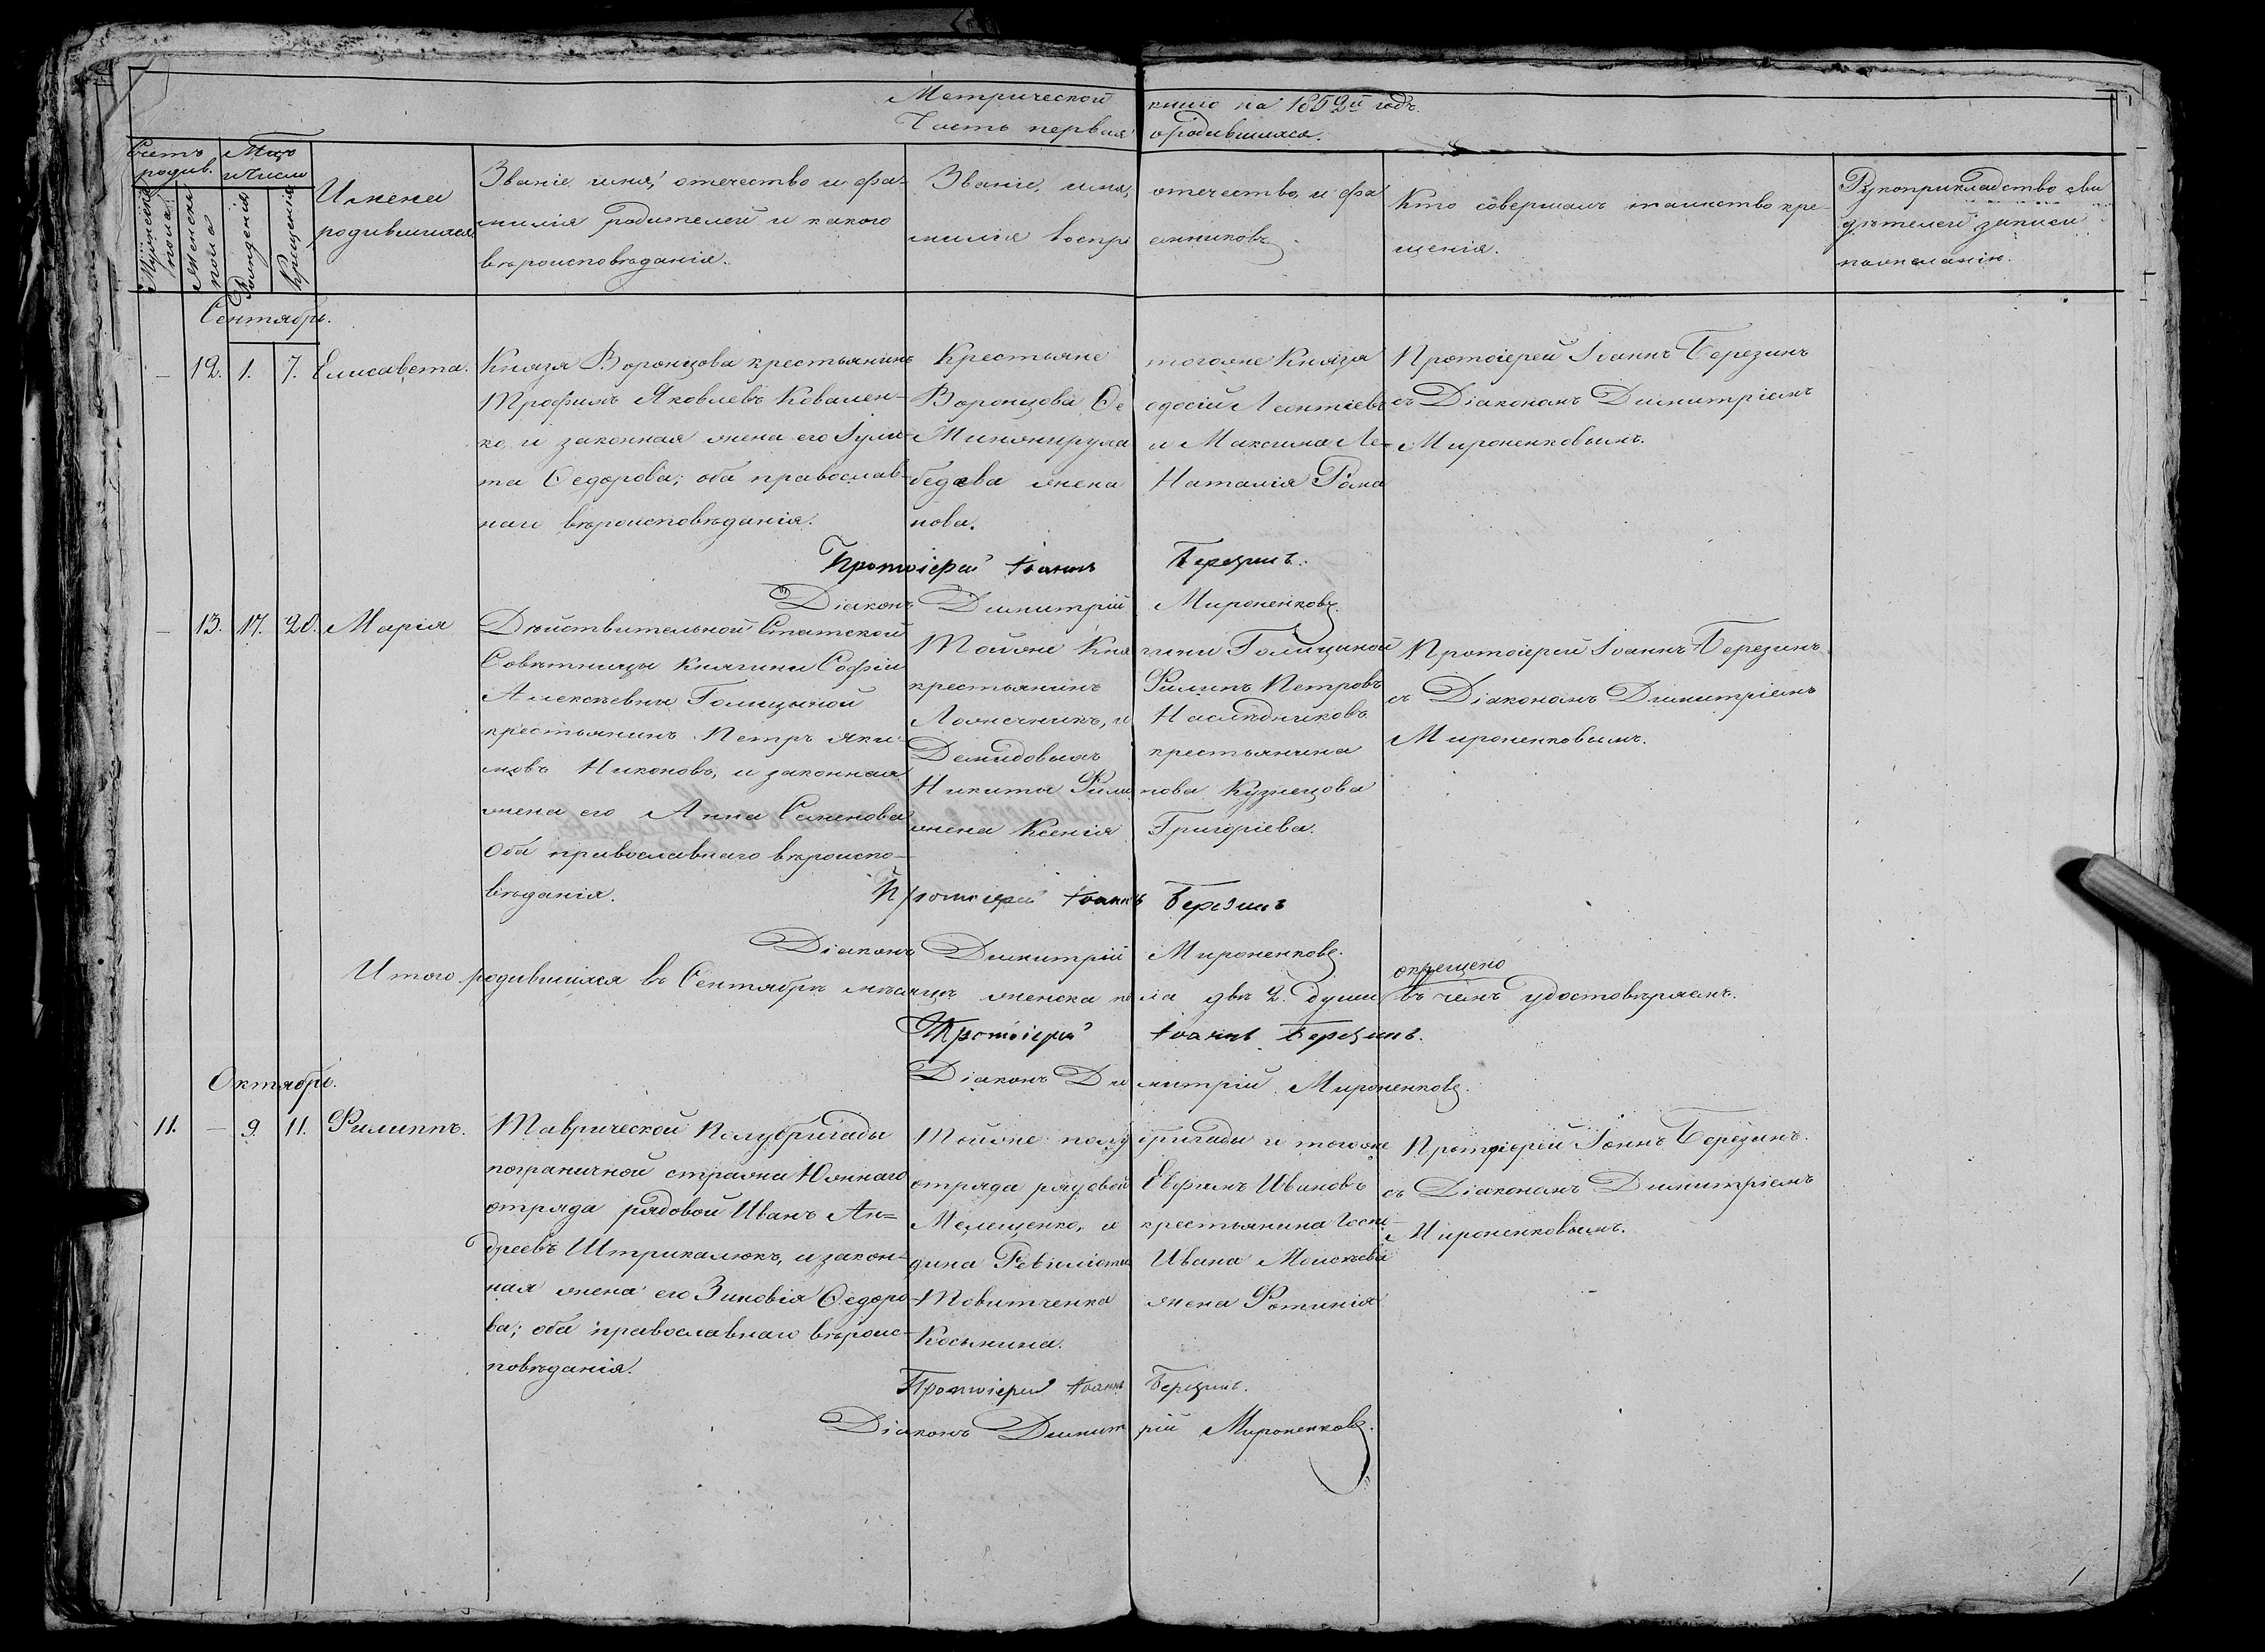 Метрической книги на 1852й годъ.
Часть первая о родившихся.
Счетъ родив.
Мужеска пола
Женска пола
Мцъ и число
Рожденія
Крещенія
Имена
родившихся
Званіе, имя, отечество и фа-
милія родителей и какого
вѣроисповѣданія.
Званіе, имя, отечество, и фа
милія воспріемниковъ
Кто совершалъ таинство кре-
щенія.
Рукоприкладство сви
дѣтелей записи
по желанію.
Сентябрь.
— 12. 1. 7. Елисавета.
Князя Воронцова крестьянинъ
Трофимъ Яковлевъ Ковален-
ко, и законная жена его Іули-
та Ѳедорова; оба православ-
наго вѣроисповѣданія.
Крестьяне тогоже Князя
Воронцова Ѳеодосій Леонтіевъ
и Максима Ле-
бедева жена Наталія Рома
нова.
Протоіерей Іоаннъ Березинъ
съ Діакономъ Димитріемъ
Мироненковымъ.
Протоіерей Іоаннъ Березинъ.
Діаконъ Димитрій Мироненковъ.
— 13. 17. 20. Марія
Дѣйствительной Статской
Совѣтницы Княгини Софіи
Алексѣевны Голицыной
крестьянинъ Петръ Яки
мовъ Никоновъ, и законная
жена его Анна Семенова
Оба православнаго вѣроиспо-
вѣданія.
Тойже Княгини Голицыной
крестьянинъ Филипъ Петровъ
Ложечникъ, и Наслѣдниковъ
Демидовыхъ крестьянина
Никиты Филипова Кузнецова
жена Ксенія Григоріева.
Протоіерей Іоаннъ Березинъ
съ Діакономъ Димитріемъ
Мироненковымъ.
Протоіерей Іоаннъ Березинъ
Діаконъ Димитрій Мироненковъ.
окрещено
Итого родившихся въ Сентябрѣ мѣсяцѣ женска пола двѣ 2. души въ чемъ удостовѣряемъ.
Протоіерей Іоаннъ Березинъ.
Діаконъ Димитрій Мироненковъ.
Октябрь.
11. — 9. 11. Филиппъ.
Таврической Полубригады
пограничной стражи Южнаго
отряда рядовой Иванъ Ан=
дреевъ Штрикалюкъ, и закон-
ная жена его Зиновія Ѳедоро
ва; оба православнаго вѣроис-
повѣданія.
Тойже полубригады и тогоже
отряда рядовой Евфимъ Ивановъ
Мелещенко, и крестьянина Госпо
дина Ревиліоти Ивана Моисѣева
Товитченка жена Фотинія
Косьмина.
Протоіерей Іоннъ Березинъ.
съ Діакономъ Димитріемъ
Мироненковымъ.
Протоіерей Іоаннъ Березинъ.
Діаконъ Димитрій Мироненковъ.